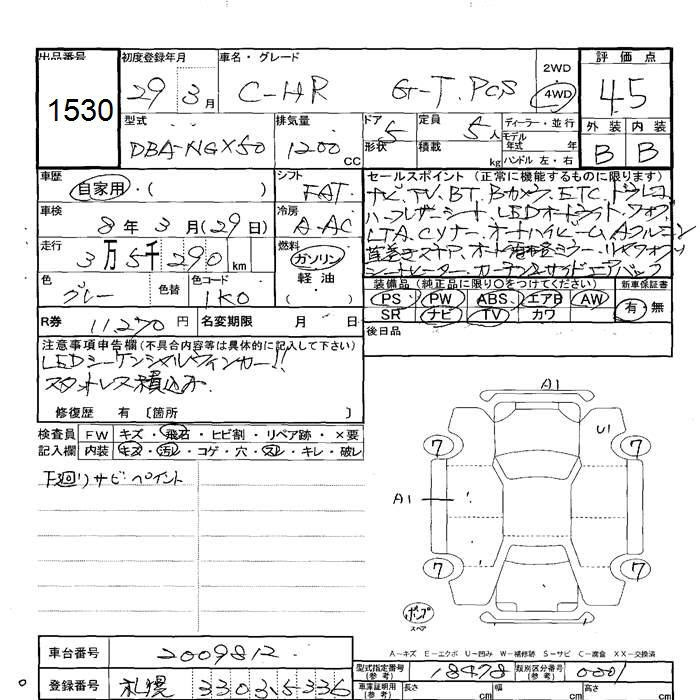 出品番号 初度登録年月 車名・グレード 評価点
1530 29 3月 C-HR G-T.PCS 2WD 4WD 4.5
型式 排気量 ドア 定員 ディーラー・並行 外装 内装
DBA-NGX50 1200 CC 5 5人 モデル年式 年
形状 積載 kg ハンドル 左・右 B B
車歴 自家用・( ) シフト FAT
セールスポイント (正常に機能するものに限ります)
ナビ、TV、BT、Bカメラ、ETC、ドラレコ
車検 8年 3月(29日) 冷房 A.AC
ハーフレザーシート、LEDオートライト、フォグ
走行 3万 5千 290 km 燃料 ガソリン 軽油
シートヒーター、カーテン&サイドエアバッグ
色 グレー 色替 色コード 1K0
装備品 (純正品に限り○をつけてください) 新車保証書
PS PW ABS エアB AW 有・無
SR ナビ TV カワ
R券 11270円 名変期限 月 日
後日品
注意事項申告欄 (不具合内容等は具体的に記入して下さい)
LEDシーケンシャルウインカー!!
スタットレス積込み
修復歴 有 〔箇所 〕
検査員 FW キズ・飛石・ヒビ割・リペア跡・×要
記入欄 内装 キズ・汚レ・コゲ・穴・スレ・キレ・破レ
下廻りサビペイント
A1
7 U1 7
A1
7 7
ポンプ
スペア
A-キズ E-エクボ U-凹み W-補修跡 S-サビ C-腐食 XX-交換済
車台番号 2009812
型式指定番号(参考) 18478 類別区分番号(参考) 0001
登録番号 札幌 330 さ 5336
車庫証明用(参考) 長さ cm 幅 cm 高さ cm